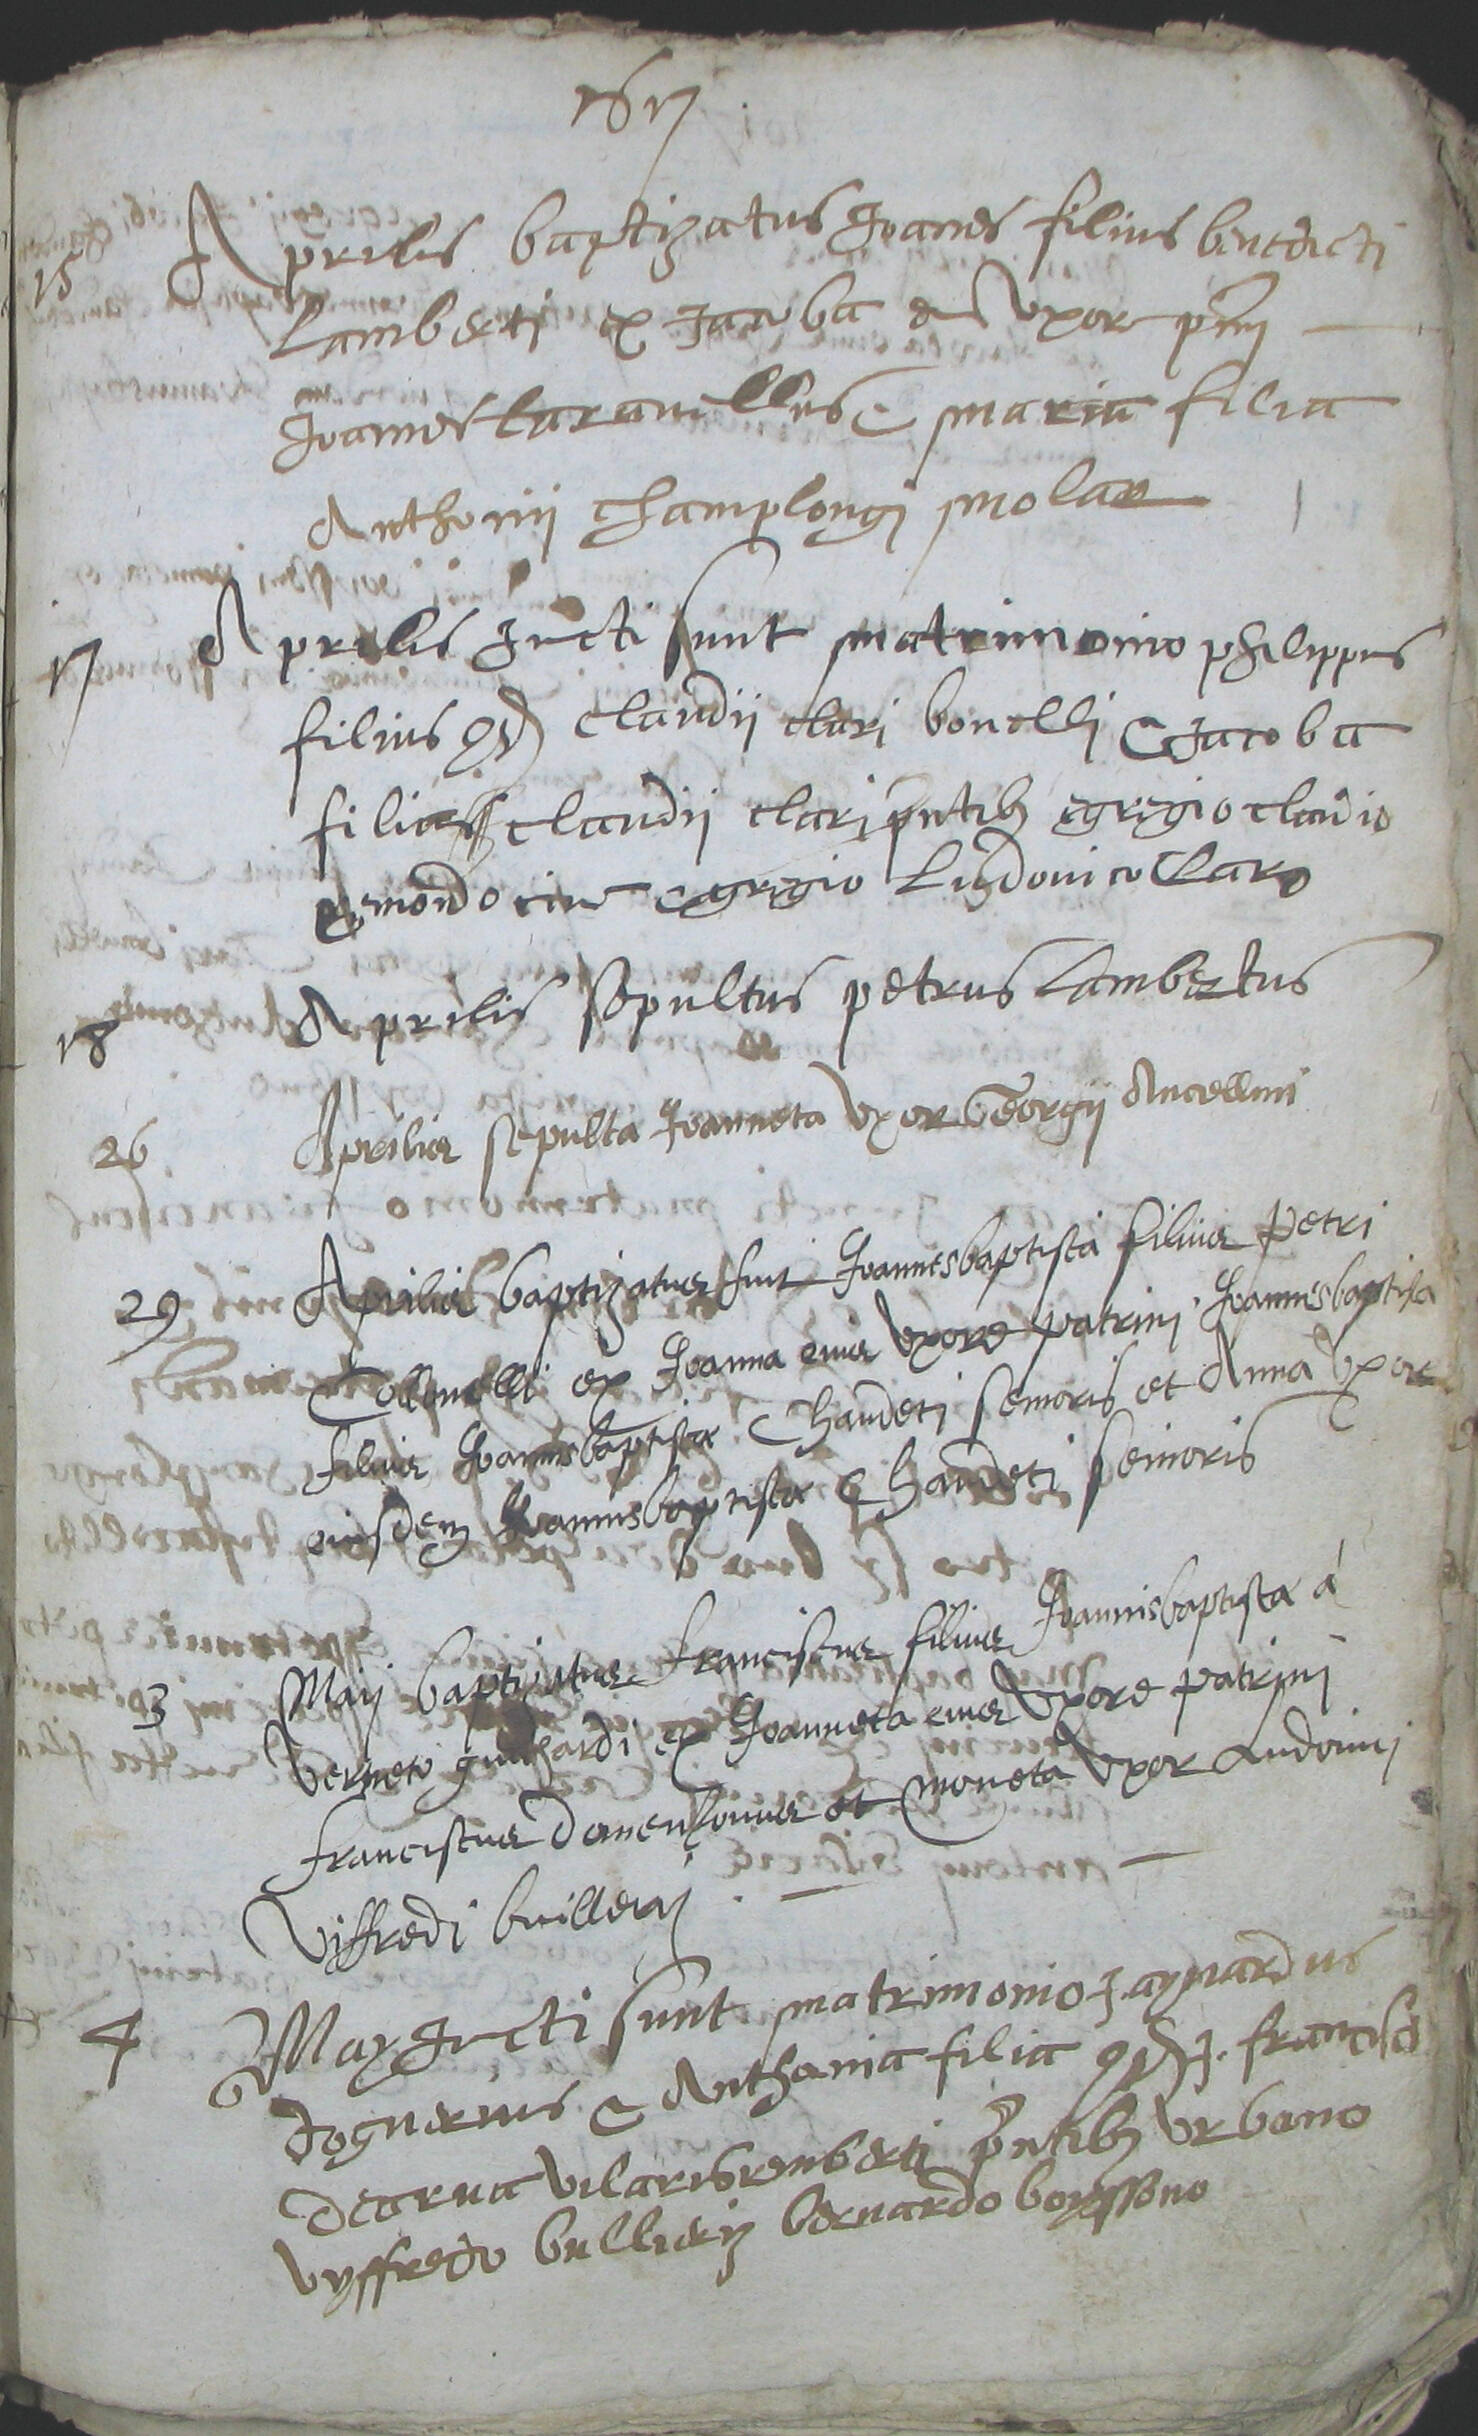 1617
15 Aprilis baptizatus Joanes filius benedicti
Lamberti ex Jacoba e Uxore pnj
Joannes taravellus & maria filia
Anthonij champlongj molae
17 Aprilis Juncti sunt matrimonio philippus
filius qd claudij clari bonelli & Jacoba
filia claudij clarj pntibz egregio claudio
emondo cive egregio Ludovico Claro
18 Aprilis sepultus petrus Lambertus
26 Aprilis sepulta Joanneta Uxor Georgij Ancellini
29 Aprilis baptizatus fuit Joannesbaptista filius Petri
Collonelli ex Joanna eius Uxore patrini Joannesbaptista
filius Joannisbaptistae Chaudeti senioris et Anna Uxore
eiusdem Joannisbaptistae Chaudeti senioris
3 Maij baptizatus Franciscus filius Joannisbaptistae à
Verneto guichardi ex Joanneta eius Uxore patrini
Franciscus et moneta Uxor Ludovici
Viffredi buillerij
4 May Juncti sunt matrimonio J. aynardus
Joguerius & Anthonia filia qd J. francisci
decrua vilarisremberti pntibz Urbano
vyffredo bullierij bernardo boyssono